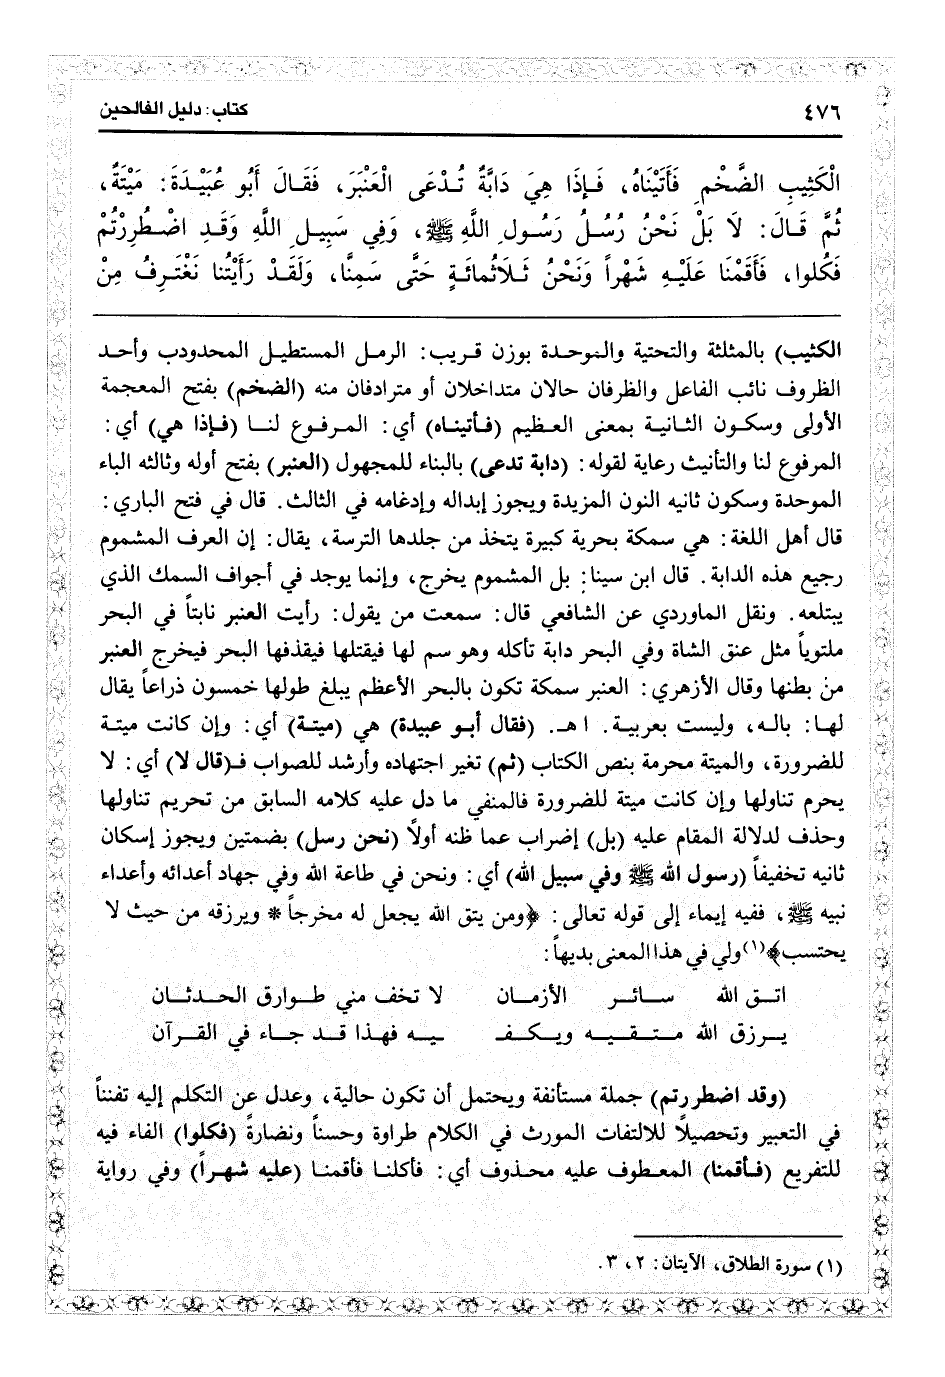 ٤٧٦
كتاب: دليل الفالحين
الْكَثِيبِ الضَّخْمِ فَأَتَيْنَاهُ، فَإِذَا هِيَ دَابَّةٌ تُدْعَى الْعَنْبَرَ، فَقَالَ أَبُو عُبَيْدَةَ: مَيْتَةٌ،
ثُمَّ قَالَ: لَا بَلْ نَحْنُ رُسُلُ رَسُولِ اللَّهِ ﷺ، وَفِي سَبِيلِ اللَّهِ وَقَدِ اضْطُرِرْتُمْ
فَكُلوا، فَأَقَمْنَا عَلَيْهِ شَهْراً وَنَحْنُ ثَلَاثُمائَةٍ حَتَّى سَمِنَّا، وَلَقَدْ رَأَيْتُنا نَغْتَرِفُ مِنْ
الكثيب) بالمثلثة والتحتية والموحدة بوزن قريب: الرمل المستطيل المحدودب وأحد
الظروف نائب الفاعل والظرفان حالان متداخلان أو مترادفان منه (الضخم) بفتح المعجمة
الأولى وسكون الثانية بمعنى العظيم (فأتيناه) أي: المرفوع لنا (فإذا هي) أي:
المرفوع لنا والتأنيث رعاية لقوله: (دابة تدعى) بالبناء للمجهول (العنبر) بفتح أوله وثالثه الباء
الموحدة وسكون ثانيه النون المزيدة ويجوز إبداله وإدغامه في الثالث. قال في فتح الباري:
قال أهل اللغة: هي سمكة بحرية كبيرة يتخذ من جلدها الترسة، يقال: إن العرف المشموم
رجيع هذه الدابة. قال ابن سينا: بل المشموم يخرج، وإنما يوجد في أجواف السمك الذي
يبتلعه. ونقل الماوردي عن الشافعي قال: سمعت من يقول: رأيت العنبر نابتاً في البحر
ملتوياً مثل عنق الشاة وفي البحر دابة تأكله وهو سم لها فيقتلها فيقذفها البحر فيخرج العنبر
من بطنها وقال الأزهري: العنبر سمكة تكون بالبحر الأعظم يبلغ طولها خمسون ذراعاً يقال
لها: باله، وليست بعربية. اهـ. (فقال أبو عبيدة) هي (ميتة) أي: وإن كانت ميتة
للضرورة، والميتة محرمة بنص الكتاب (ثم) تغير اجتهاده وأرشد للصواب فـ(قال لا) أي: لا
يحرم تناولها وإن كانت ميتة للضرورة فالمنفي ما دل عليه كلامه السابق من تحريم تناولها
وحذف لدلالة المقام عليه (بل) إضراب عما ظنه أولاً (نحن رسل) بضمتين ويجوز إسكان
ثانيه تخفيفاً (رسول الله ﷺ وفي سبيل الله) أي: ونحن في طاعة الله وفي جهاد أعدائه وأعداء
نبيه ﷺ، ففيه إيماء إلى قوله تعالى: ﴿ومن يتق الله يجعل له مخرجاً * ويرزقه من حيث لا
يحتسب﴾(١) ولي في هذا المعنى بديهاً:
اتق الله سائر الأزمان لا تخف مني طوارق الحدثان
يرزق الله متقيه ويكفـ ـيه فهذا قد جاء في القرآن
(وقد اضطررتم) جملة مستأنفة ويحتمل أن تكون حالية، وعدل عن التكلم إليه تفنناً
في التعبير وتحصيلاً للالتفات المورث في الكلام طراوة وحسناً ونضارةً (فكلوا) الفاء فيه
للتفريع (فأقمنا) المعطوف عليه محذوف أي: فأكلنا فأقمنا (عليه شهراً) وفي رواية
(١) سورة الطلاق، الآيتان: ٢، ٣.